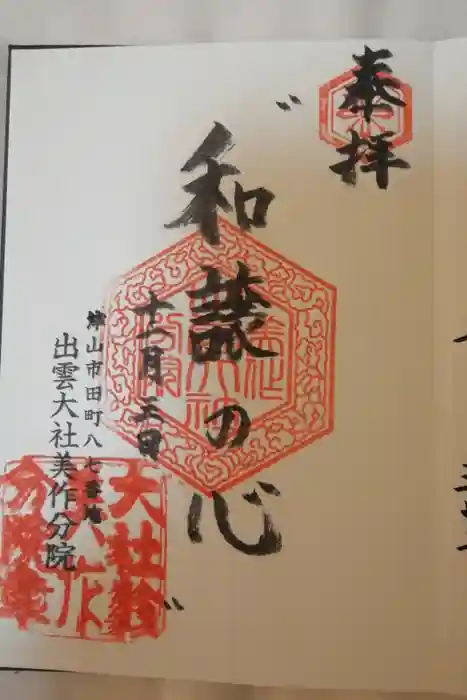 奉拝
和譲の心
十一月三日
津山市田町八七番地
出雲大社美作分院